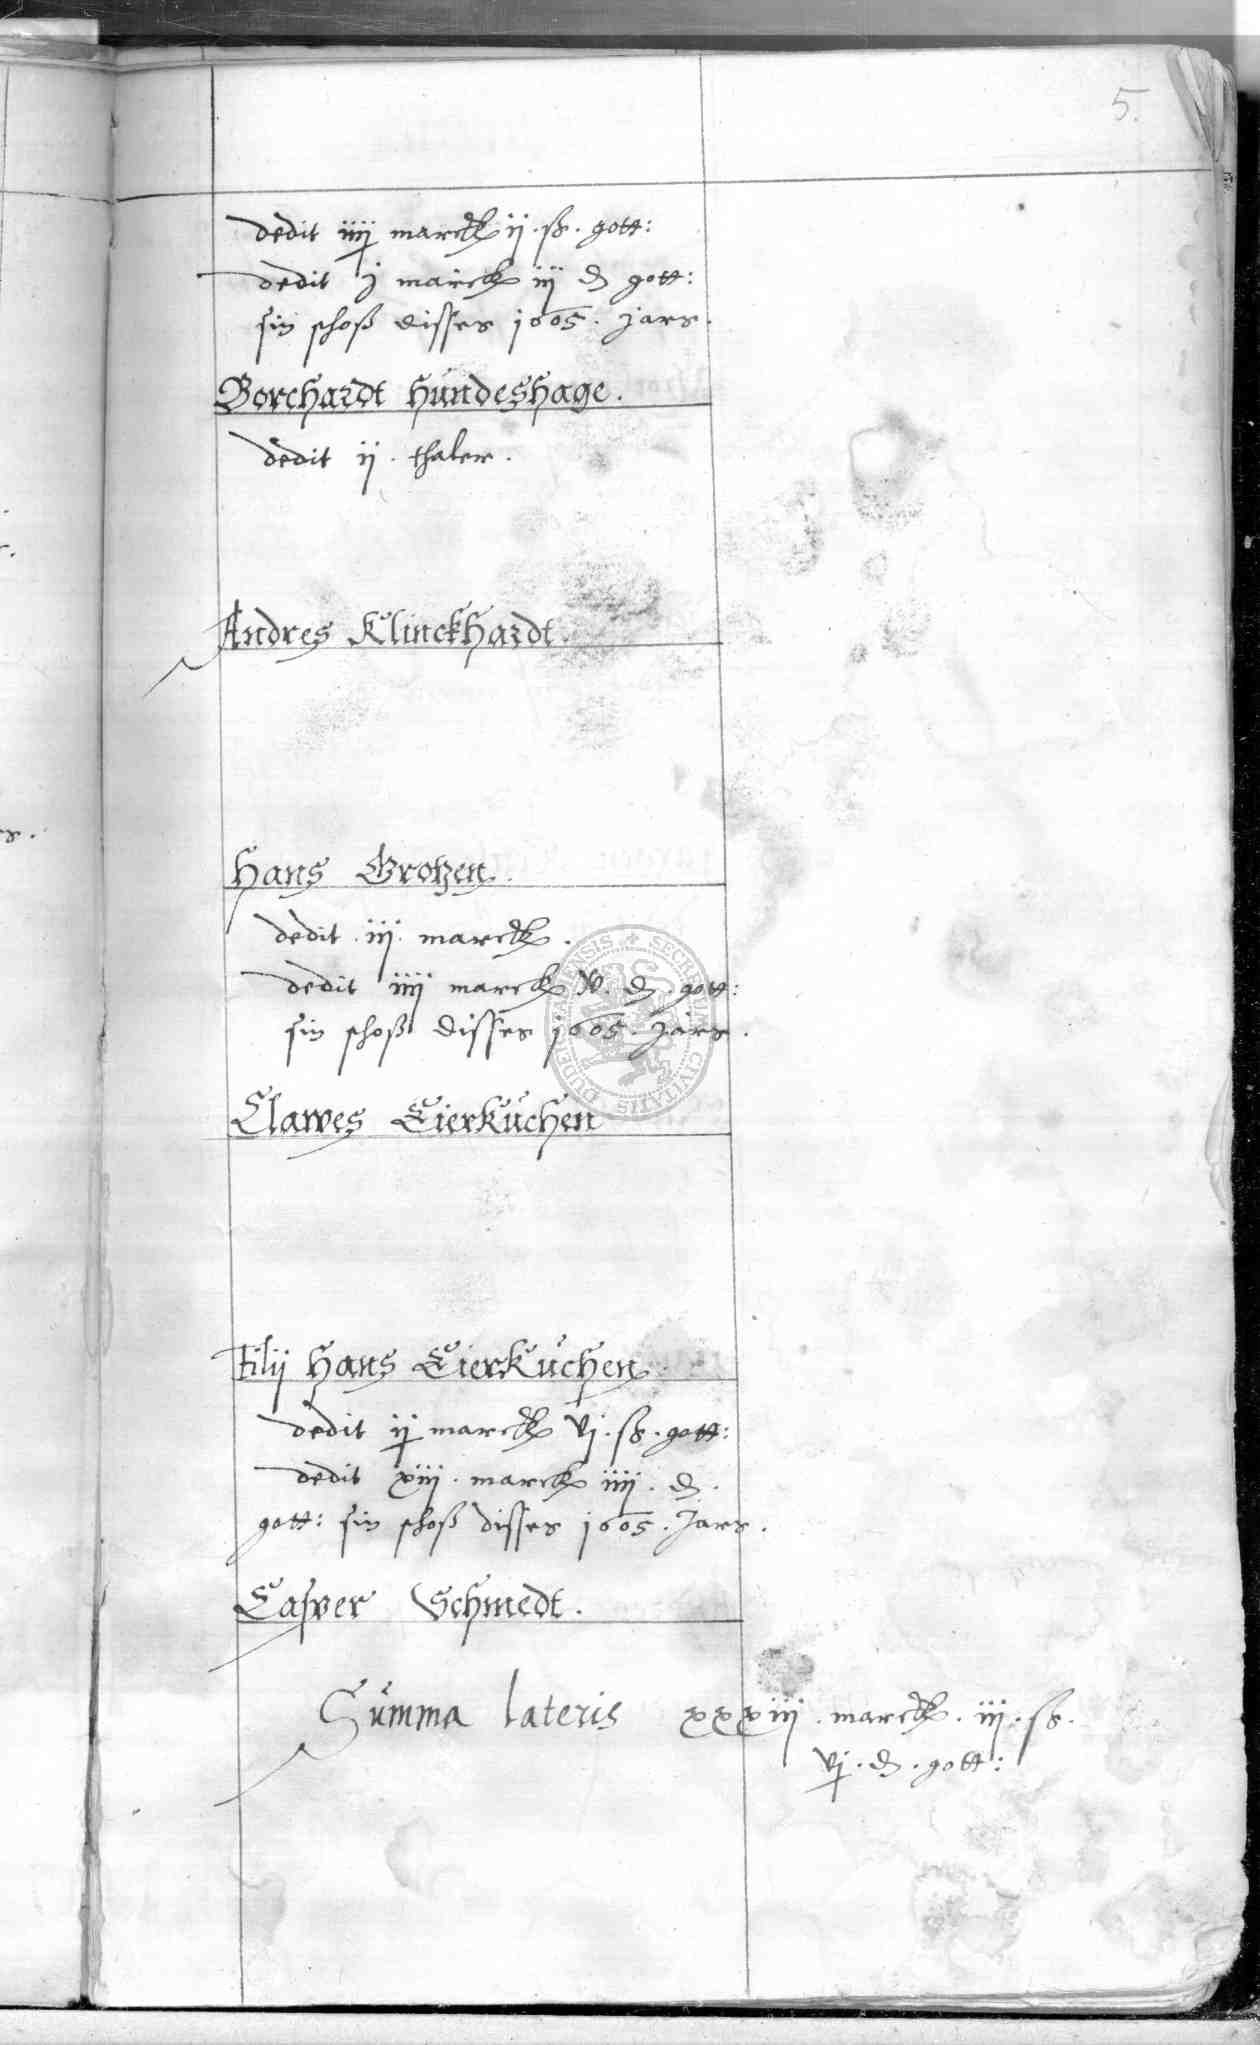 5.
dedit iiij marck ij . ß . gott:
dedit j marck iij d gott:
sin schoß disses 1605 . Jars .
Borchardt Hundeshage .
dedit ij . thaler .
Andres Klinckhardt .
Hans Grotzen .
dedit . iij . marck .
dedit iiij marck . d . gott:
sin schoß disses 1605 . Jars .
Clawes Eierkuchen
filij Hans Eierkuchen
dedit ij marck vj . ß . gott:
dedit xiij . marck iiij . d .
gott: sin schoß disses 1605 . Jars .
Casper Schmedt .
Summa lateris xxxiij . marck . iij . ß .
vj . d . gott:
SECRETUM CIVITATIS DUDERSTADENSIS